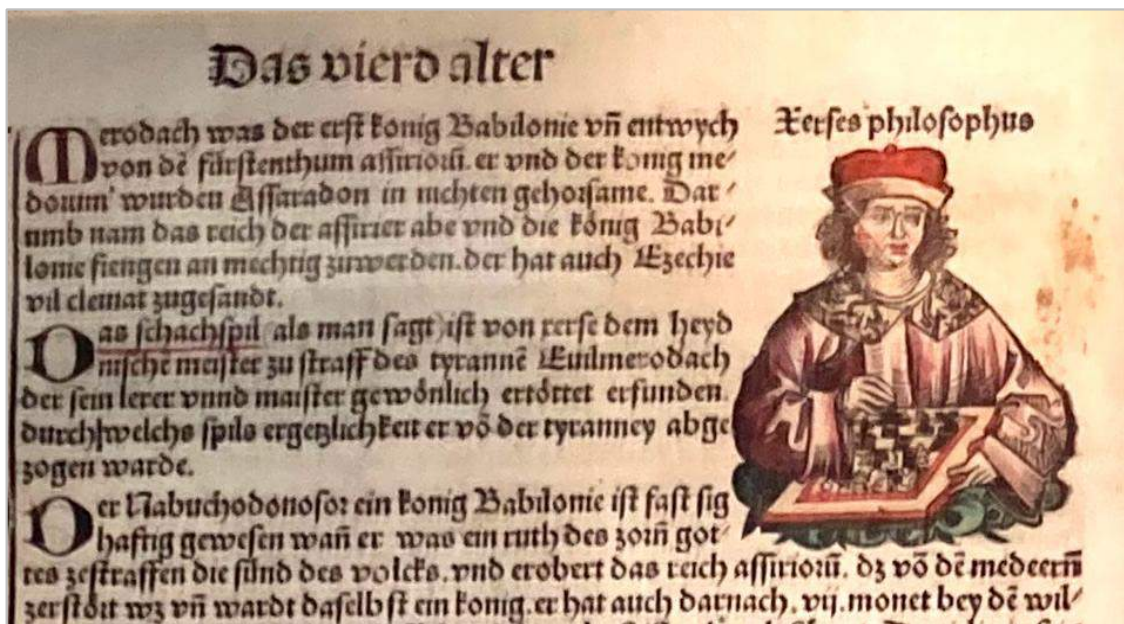 Das vierd alter
Merodach was der erst konig Babilonie vñ entwych
von dē fürstenthum assirioıū. er vnd der konig me⸗
doıum' wurden Assaradon in nichten gehoꝛsame. Dar⸗
umb nam das reich der assirier abe vnd die kőnig Babi⸗
lonie fiengen an mechtig zuwerden. der hat auch Ezechie
vil cleinat zugesandt.
Das schachspil (als man sagt) ist von xerse dem heyd
nischē meister zu straff des tyrannē Euilmerodach
der sein lerer vnnd maister gewőnlich ertőttet erfunden.
durch welchs spils ergetzlichkeit er võ der tyranney abge
zogen warde.
Der Nabuchodonosoꝛ ein konig Babilonie ist fast sig
hafftig gewesen wañ er was ein ruth des zoꝛñ got⸗
tes zestraffen die sünd des volcks. vnd erobert das reich assirioꝛū. dz võ dē medeerñ
zerstoꝛt wz vñ wardt daselbst ein konig. er hat auch darnach. vij. monet bey dē wil⸗
Xerses philosophus